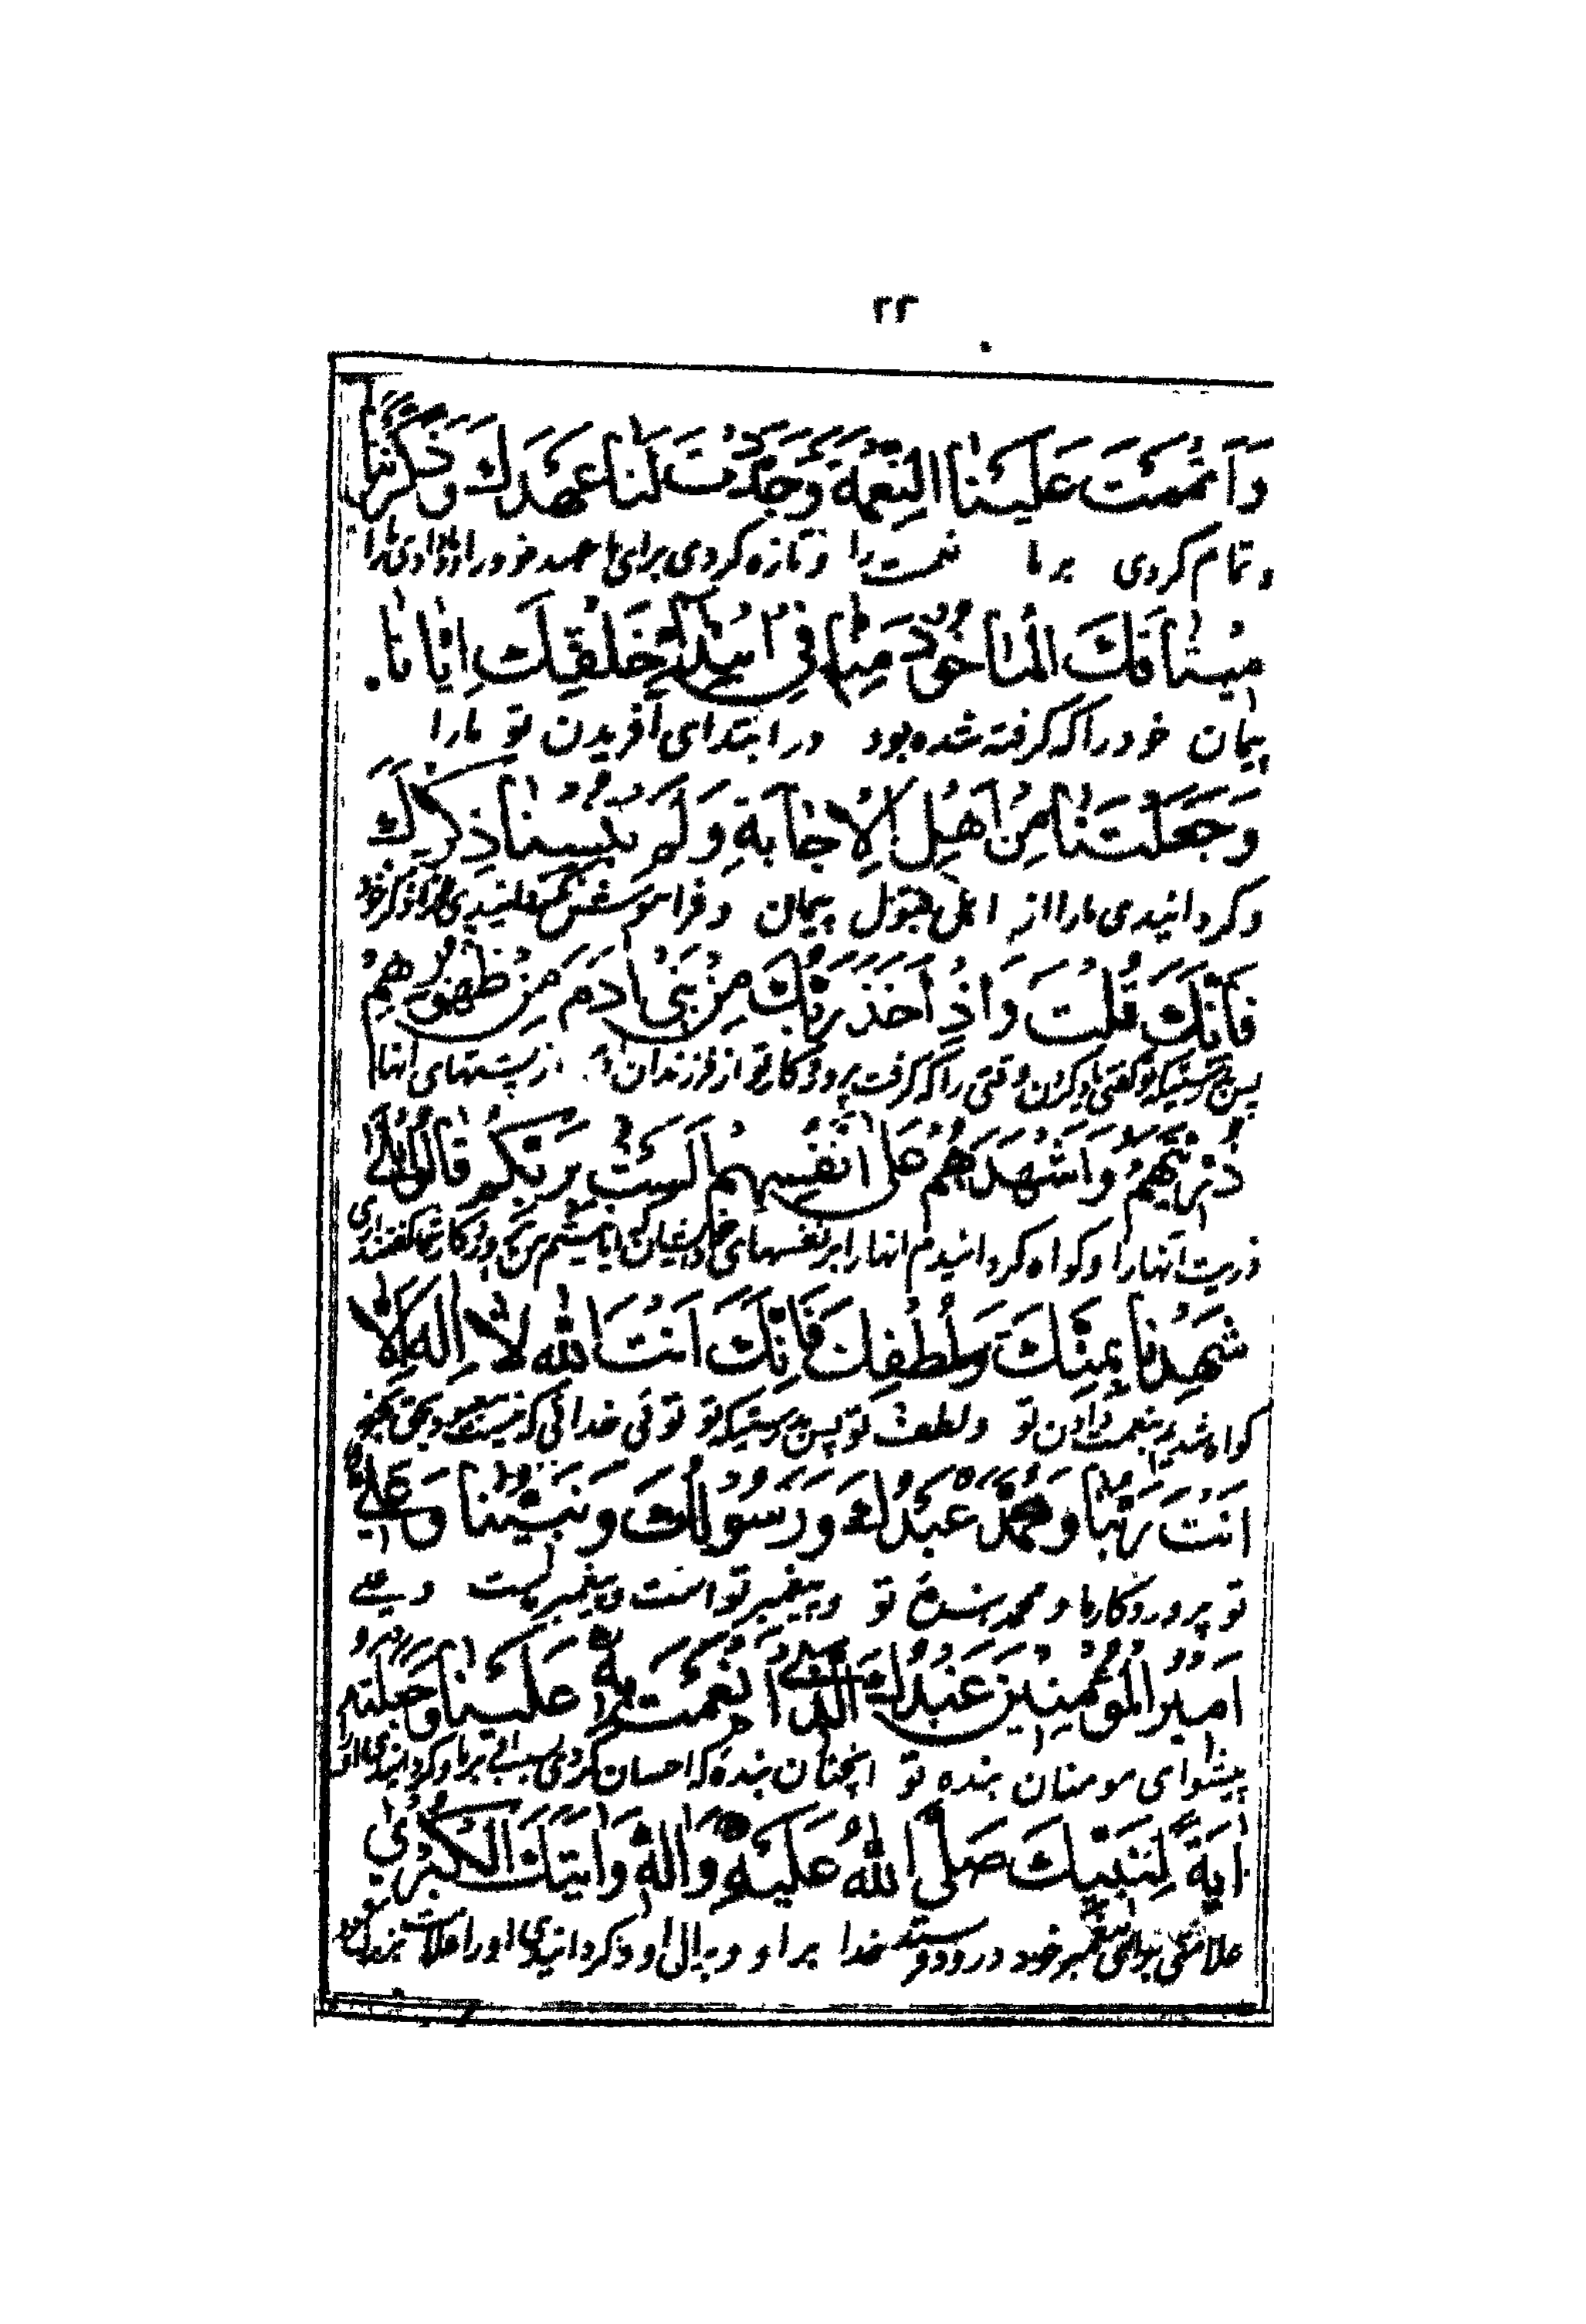 ٢٢
وَاَتْمَمْتَ عَلَيْنَا النِّعْمَةَ وَجَدَّدْتَ لَنَا عَهْدَكَ وَذَكَّرْتَنَا
وتمام کردی بر ما نعمت را و تازه کردی برای ما عهد خود را و یاد دادی ما را
مِيثَاقَكَ الْمَاْخُوذَ مِنَّا فِي ابْتِدَاءِ خَلْقِكَ اِيَّانَا
پیمان خود را که گرفته شده بود در ابتدای آفریدن تو ما را
وَجَعَلْتَنَا مِنْ اَهْلِ الْاِجَابَةِ وَلَمْ تُنْسِنَا ذِكْرَكَ
و گردانیدی ما را از اهل قبول پیمان و فراموش نگردانیدی ذکر خود
فَاِنَّكَ قُلْتَ وَاِذْ اَخَذَ رَبُّكَ مِنْ بَنِي اٰدَمَ مِنْ ظُهُورِهِمْ
وقتی را که گرفت پروردگار تو از فرزندان از پشتهای انها
ذُرِّيَّتَهُمْ وَاَشْهَدَهُمْ عَلٰى اَنْفُسِهِمْ اَلَسْتُ بِرَبِّكُمْ قَالُوا بَلٰى
ذریت انها را و گواه گردانیدم انها را بر نفسهای گفتند اری
شَهِدْنَا بِمَنِّكَ وَلُطْفِكَ فَاِنَّكَ اَنْتَ اللّٰهُ لَا اِلٰهَ اِلَّا
گواه شدیم بنعمت دادن تو و لطف تو پس بدرستیکه تو توئی خدائی که نیست
اَنْتَ رَبُّنَا وَمُحَمَّدٌ عَبْدُكَ وَرَسُولُكَ وَنَبِيُّنَا وَعَلِيٌّ
تو پروردگار ما و محمد بندهٔ تو و پیغمبر تو است و پیغمبر ماست و علی
اَمِيْرُ الْمُؤْمِنِيْنَ عَبْدُكَ الَّذِي اَنْعَمْتَ بِهِ عَلَيْنَا وَجَعَلْتَهُ
پیشوای مومنان بنده تو انچنان بندهٔ که احسان کردی بسبب او بر ما و گردانیدی او را
اٰيَةً لِنَبِيِّكَ صَلَّى اللّٰهُ عَلَيْهِ وَاٰلِهِ وَاٰيَتَكَ الْكُبْرٰى
علامتی برای پیغمبر خود درود فرستد خدا بر او و بر ال او و گردانیدی او را علامت بزرگ